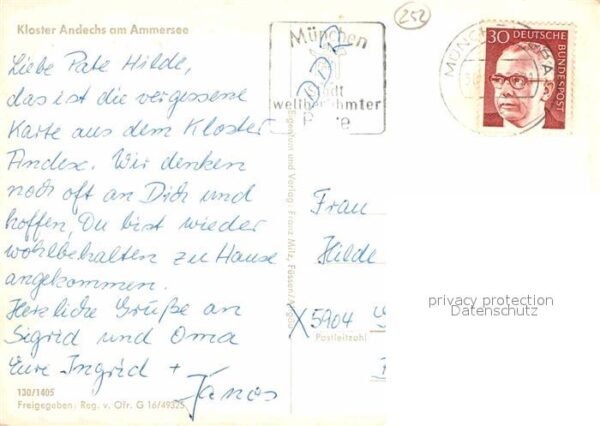 Kloster Andechs am Ammersee
252
München
D.D.R.
weltberühmter
30 DEUTSCHE BUNDESPOST
MÜNCH
Liebe Pate Hilde,
das ist die vergessene
Karte aus dem Kloster
Andex. Wir denken
noch oft an Dich und
hoffen, Du bist wieder
wohlbehalten zu Hause
angekommen.
Herzliche Grüße an
Sigrid und Oma
Eure Ingrid +
Janos
130/1405
Freigegeben: Reg. v. Ofr. G 16/49325
Eigentum und Verlag Franz Milz, Füssen/Allgäu
Frau
Hilde
X 5904
Postleitzahl
privacy protection
Datenschutz